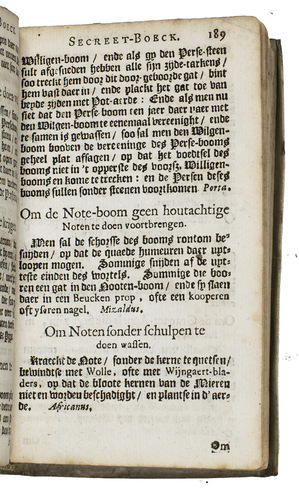 SECREET-BOECK. 189
Willigen-boom / ende als gy den Perse-steen
sult afgesneden hebben alle sijn zijde-tacken/
soo treckt hem door dit door-geboorde gat / bint
hem vast daer in / ende placht het gat toe van
beyde zijden met Pot-aerde : Ende als men nu
siet dat den Perse-boom een jaer daer naer met
den Wilgen-boom te eenemael vereenight / ende
te samen is gewassen / soo sal men den Wilgen-
boom booven de vereeninge des Perse-booms
geheel plat afsagen / op dat het voedtsel des
booms niet in 't opperste des voorsz. Willigen-
booms en kome te trecken : en de Persen deses
booms sullen sonder steenen voortkomen. Porta.
Om de Note-boom geen houtachtige
Noten te doen voortbrengen.
Men sal de schorsse des booms rontom be-
snijden / op dat de quaede humeuren daer uyt-
loopen mogen. Sommige snijden af de uyt-
terste einden des wortels. Sommige die boo-
ren een gat in den Nooten-boom / ende sy slaen
daer in een Beucken prop, ofte een kooperen
oft yseren nagel. Mizaldus.
Om Noten sonder schulpen te
doen wassen.
Kraeckt de Note / sonder de kerne te quetsen /
bewindtse met Wolle, ofte met Wijngaert-bla-
ders, op dat de bloote kernen van de Mieren
niet en worden beschadight / en plantse in d'aer-
de. Africanus.
Om